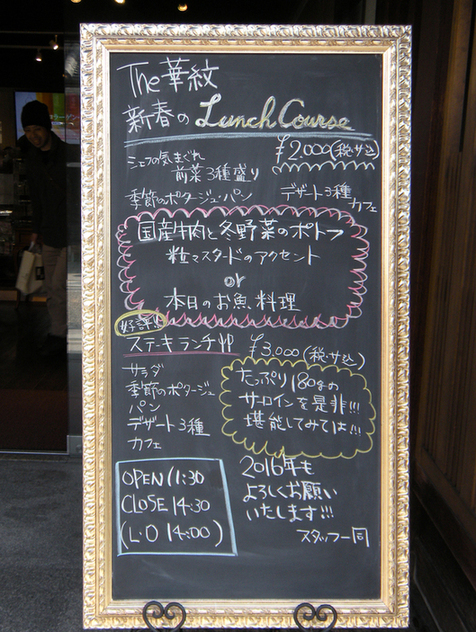 The 華紋
新春の Lunch Course
¥2.000(税サ込)
シェフの気まぐれ
前菜3種盛り
季節のポタージュ・パン
デザート3種
カフェ
国産牛肉と冬野菜のポトフ
粒マスタードのアクセント
or
本日のお魚料理
好評!!
ステーキランチ
¥3.000(税サ込)
サラダ
季節のポタージュ
パン
デザート3種
カフェ
たっぷり180gの
サーロインを是非!!!
堪能してみては!!!
OPEN 11:30
CLOSE 14:30
(L.O 14:00)
2016年も
よろしくお願い
いたします!!!
スタッフ一同